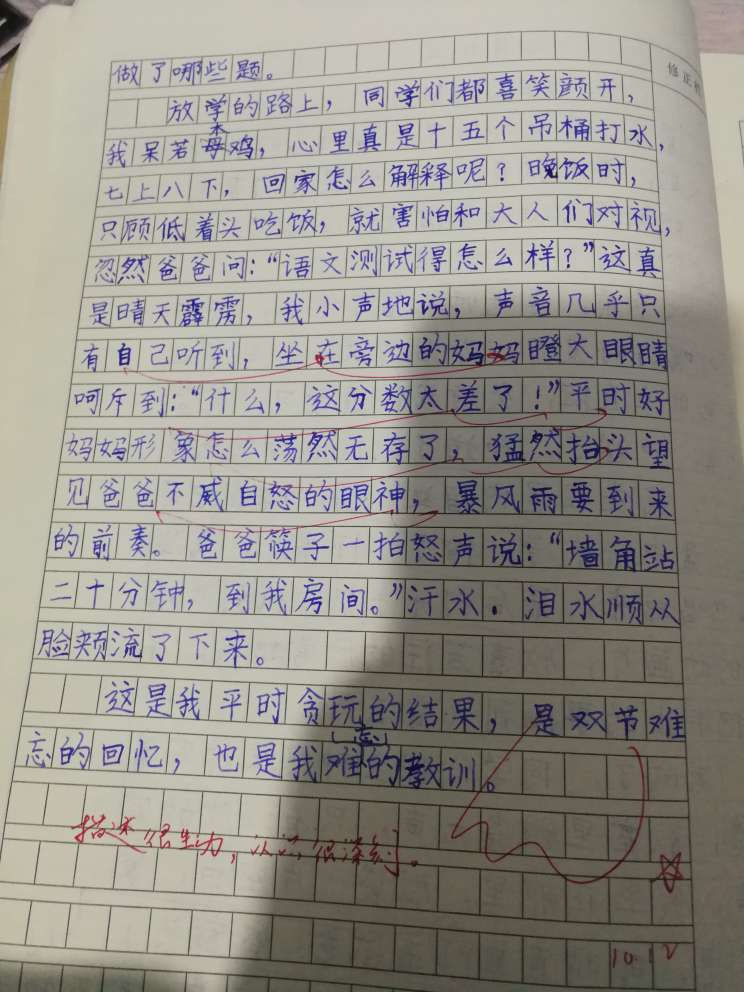 做了哪些题。
修正
放学的路上，同学们都喜笑颜开，
木
我呆若母鸡，心里真是十五个吊桶打水，
七上八下，回家怎么解释呢？晚饭时，
只顾低着头吃饭，就害怕和大人们对视，
忽然爸爸问：“语文测试得怎么样？”这真
是晴天霹雳，我小声地说，声音几乎只
有自己听到，坐在旁边的妈妈瞪大眼睛
呵斥到：“什么，这分数太差了！”平时好
妈妈形象怎么荡然无存了，猛然抬头望
见爸爸不威自怒的眼神，暴风雨要到来
的前奏。爸爸筷子一拍怒声说：“墙角站
二十分钟，到我房间。”汗水．泪水顺从
脸颊流了下来。
这是我平时贪玩的结果，是双节难
忘的回忆，也是我难的教训。
忘
描述很生动，认识很深刻。
10.12